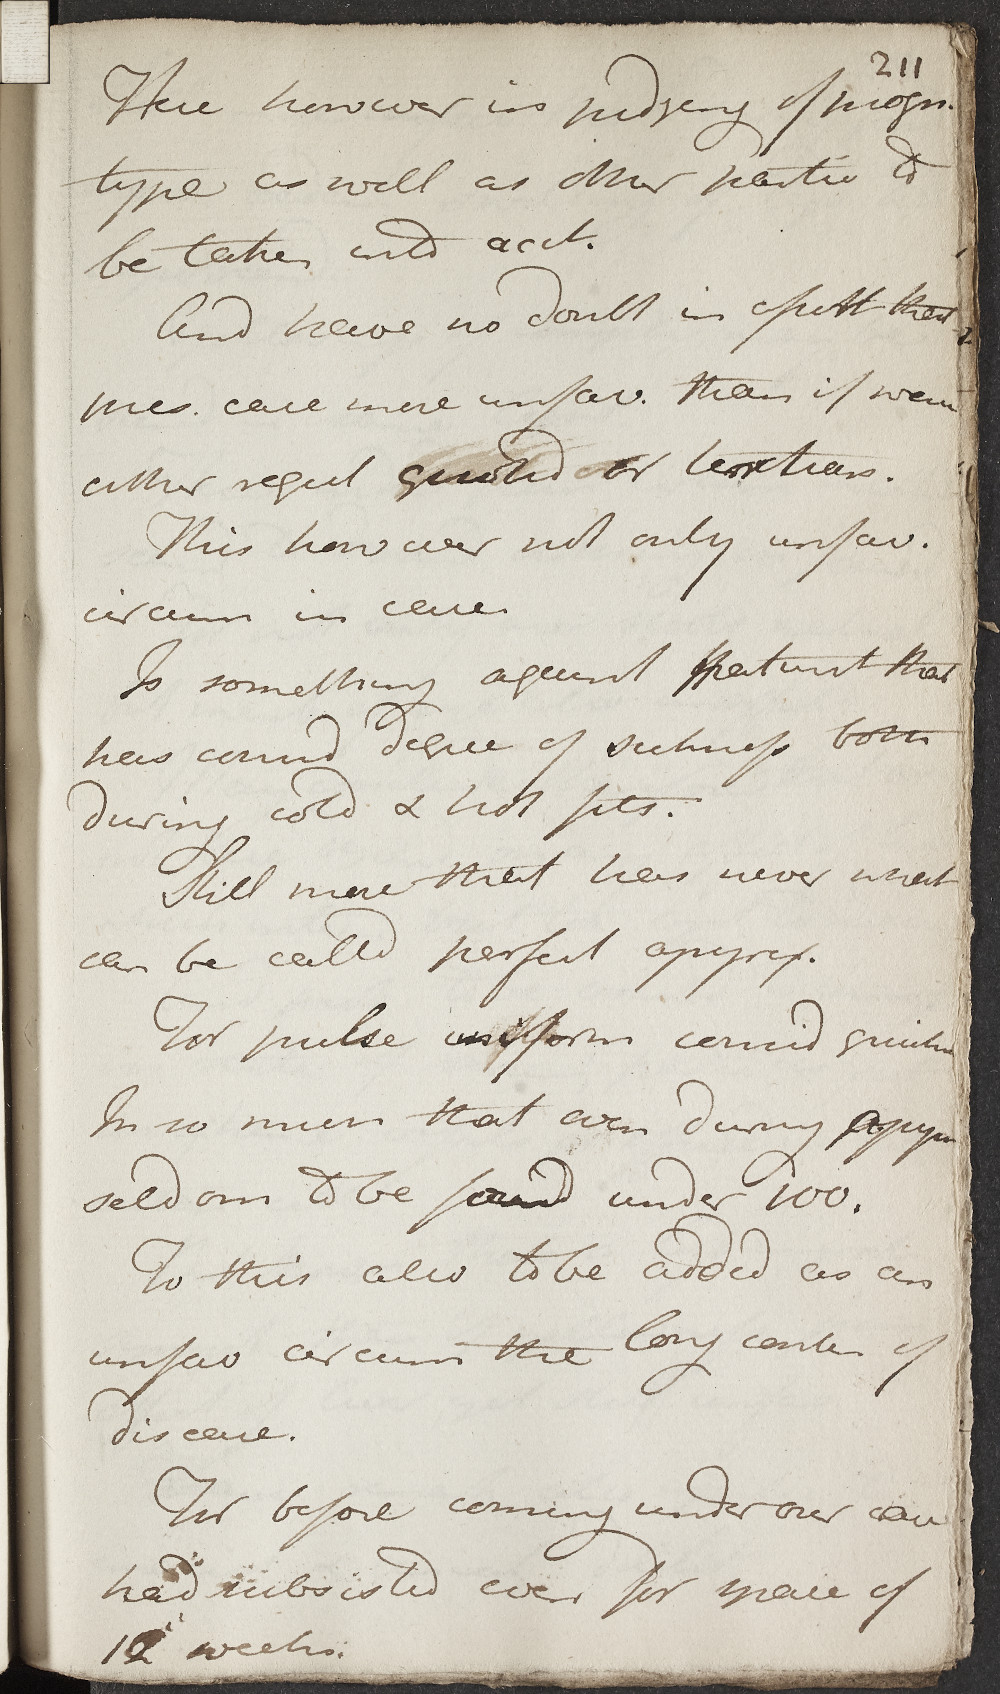 211
Here however in judging of progn.
type as well as other partic to
be taken into acct.
And have no doubt in opin that
pres. case more unfav. than if were
either regul quotid or tertian.
This however not only unfav.
circum in case
Is something against patient that
has considd degree of sickness both
during cold & hot fits.
Still more that has never what
can be called perfect apyrex.
For pulse uniform considd quicken
In so much that even during apyre
seldom to be found under 100.
To this also to be added as an
unfav circum the long contin of
disease.
For before coming under our care
had subsisted even for space of
12 weeks.